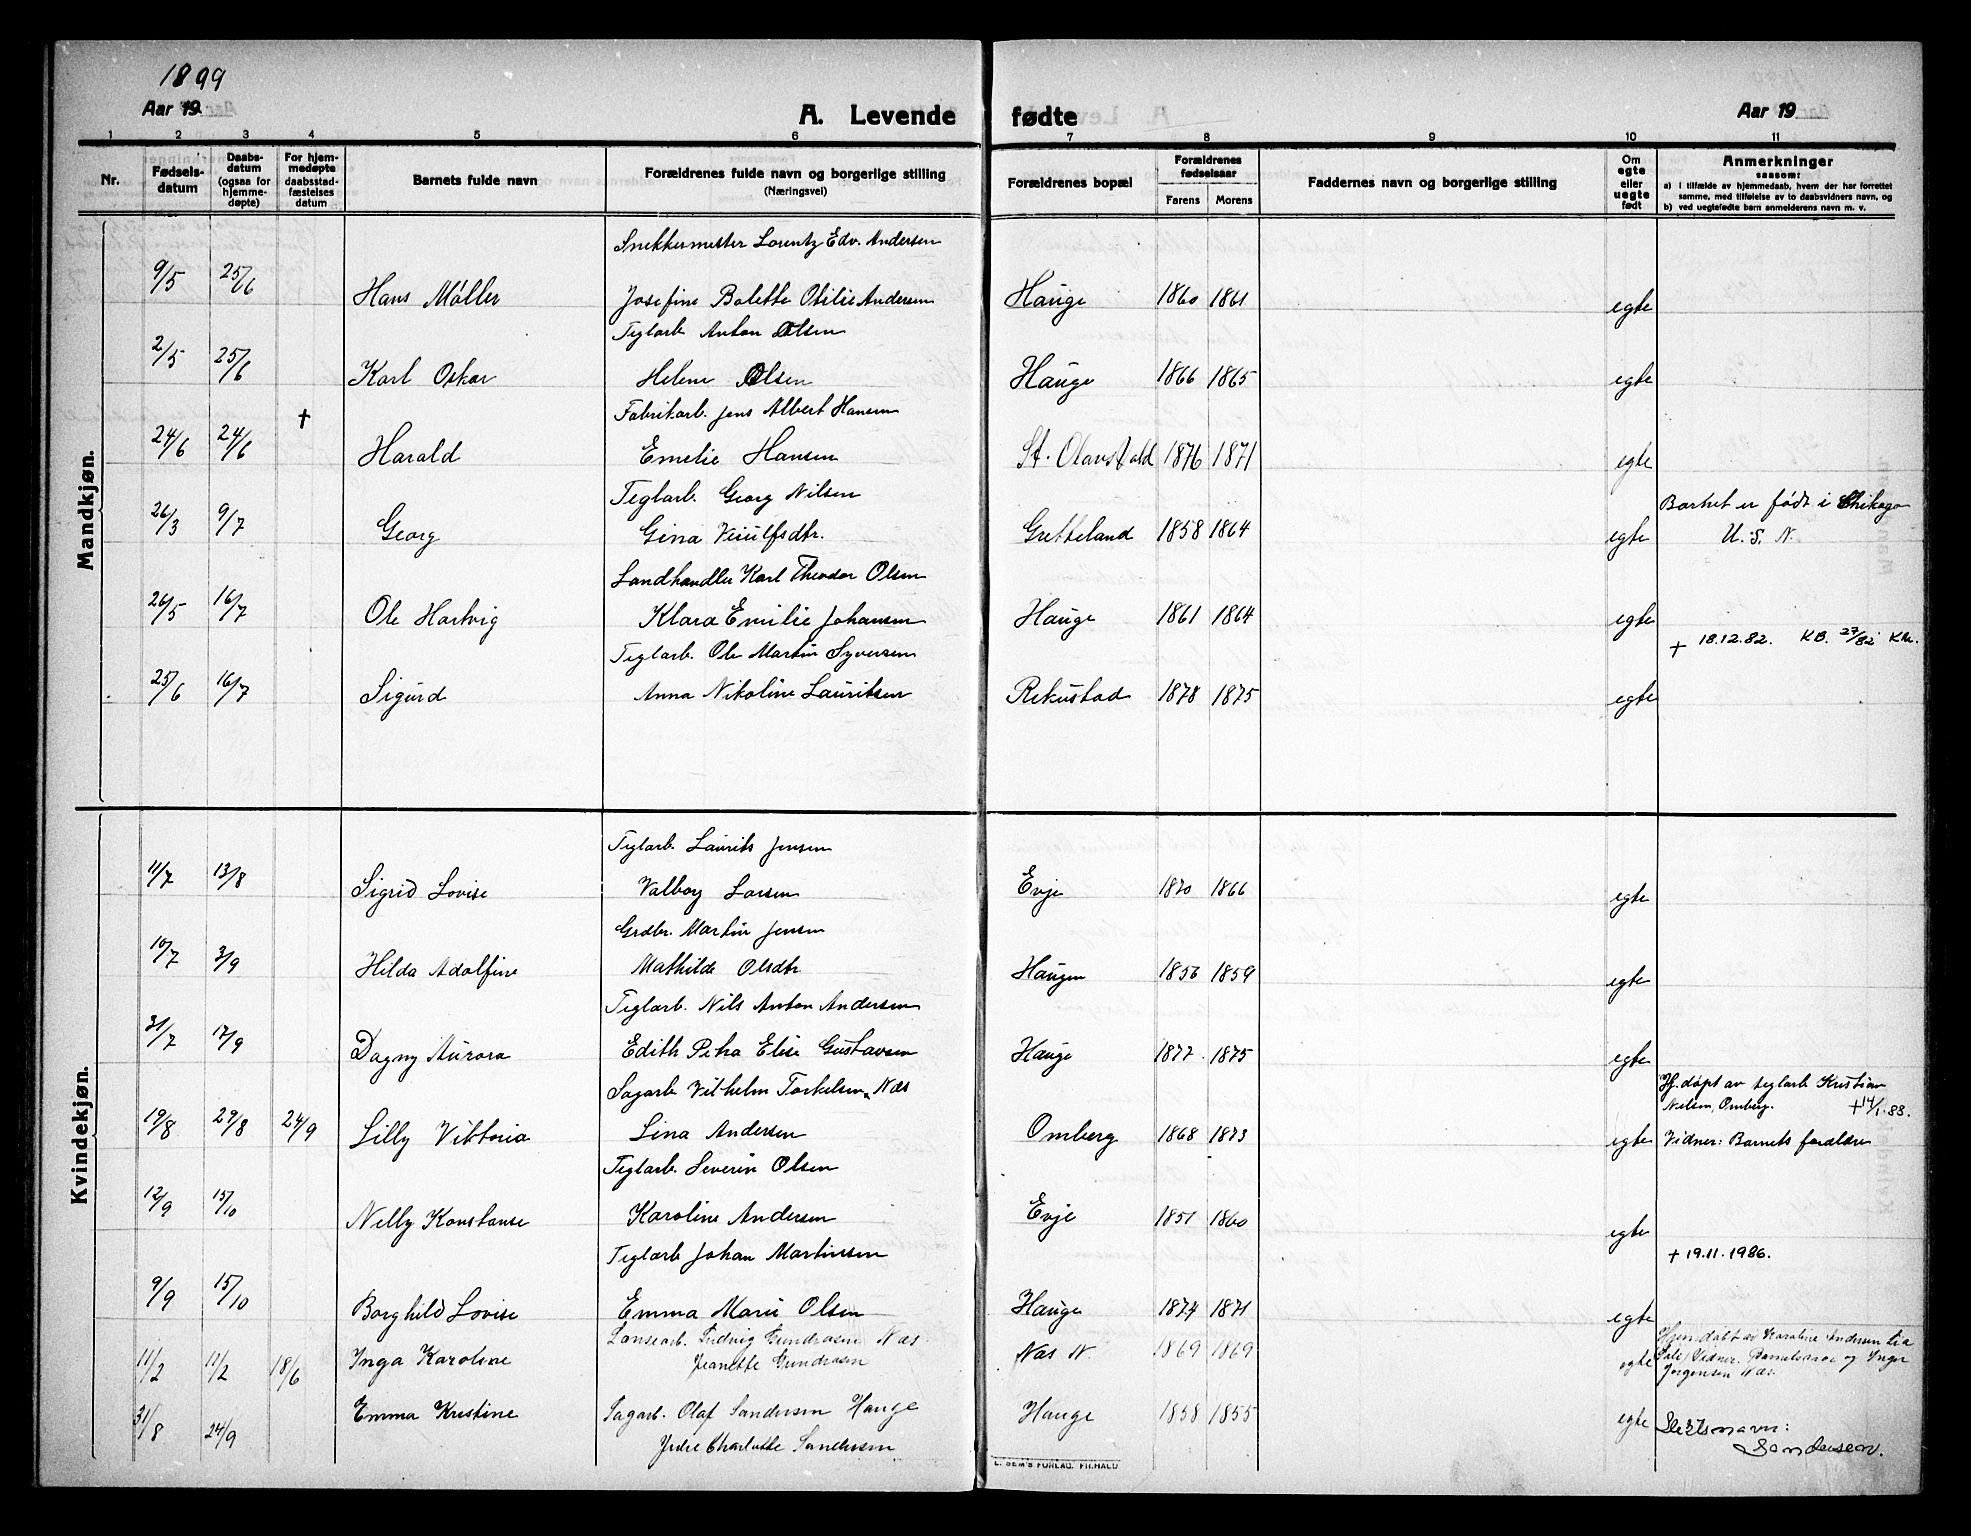 1899
Aar 19
A. Levende fødte
Aar 19
1 2 3 4 5 6 7 8 9 10 11
Nr.
Fødsels-
datum
Daabs-
datum
(ogsaa for
hjemme-
døpte)
For hjem-
medøpte
daabsstad-
fæstelses
datum
Barnets fulde navn
Forældrenes fulde navn og borgerlige stilling
(Næringsvei)
Forældrenes bopæl
Forældrenes
fødselsaar
Farens Morens
Faddernes navn og borgerlige stilling
Om
egte
eller
uegte
født
Anmerkninger
saasom:
a) i tilfælde av hjemmedaab, hvem der har forrettet
samme, med tilføielse av to daabsvidners navn, og
b) ved uegtefødte børn anmelderens navn m. v.
Mandkjøn.
Snekkermester Lorentz Edv. Andersen
9/5 25/6 Hans Møller Josefine Bolette Otilie Andersen Hauge 1860 1861 egte
Teglarb. Anton Olsen
2/5 25/6 Karl Oskar Helene Olsen Hauge 1866 1865 egte
Fabrikarb. Jens Albert Hansen
24/6 24/6 † Harald Emelie Hansen St. Olavs Vold 1876 1871 egte
Teglarb. Georg Nilsen
Barnet er født i Chikago
26/3 9/7 Georg Gina Viulfsdtr. Gretteland 1858 1864 egte U.S.N.
Landhandler Karl Theodor Olsen
26/5 16/7 Ole Hartvig Klara Emilie Johansen Hauge 1861 1864 egte
† 18.12.82. KB. 27/82 KN.
Teglarb. Ole Martin Syversen
25/6 16/7 Sigurd Anna Nikoline Lauritsen Rekustad 1878 1875 egte
Kvindekjøn.
Teglarb. Laurits Jensen
11/7 13/8 Sigrid Lovise Valborg Larsen Evje 1870 1866 egte
Grdbr. Martin Jensen
10/7 3/9 Hilda Adolfine Mathilde Olsdtr. Haugen 1856 1859 egte
Teglarb. Nils Anton Andersen
31/7 17/9 Dagny Aurora Edith Petra Elise Gustavsen Hauge 1877 1875 egte
Sagarb. Vilhelm Torkelsen, Næs
Hj. døpt av teglarb Kristian
Nilsen, Omberg. † 14/1.83.
19/8 27/8 24/9 Lilly Viktoria Lina Andersen Omberg 1868 1873 egte Vidner: Barnets forældre
Teglarb. Severin Olsen
12/9 15/10 Nelly Konstanse Karoline Andersen Evje 1851 1860 egte
† 19.11.1986.
Teglarb. Johan Martinsen
9/9 15/10 Borghild Lovise Emma Marie Olsen Hauge 1874 1871 egte
Ludvig Gundrosen Næs
11/2 11/2 18/6 Inga Karoline Jeanette Gundrosen Næs N. 1869 1869 egte
Hjemdøbt av Karoline Andersen
Vidner: og Inger
Jørgensen Næs.
31/8 24/9 Emma Kristine Sagarb. Olaf Sandersen Hauge Hauge 1858 1855 egte
Charlotte Sandersen
Slektsnavn:
Sandersen.
E. SEM'S FORLAG. FR.HALD